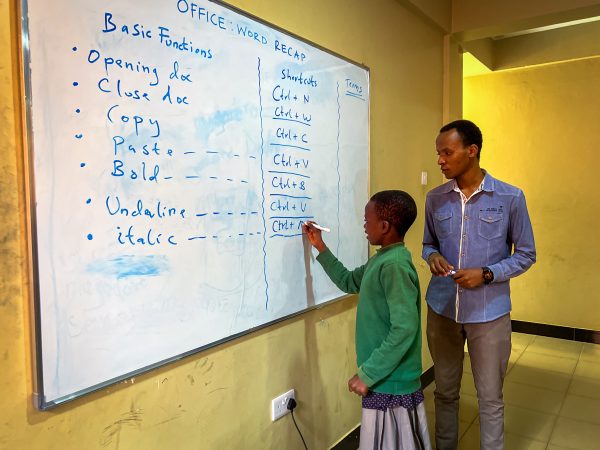 OFFICE: WORD RECAP
Basic Functions Shortcuts Terms
• Opening doc Ctrl + N
• Close doc Ctrl + W
• Copy Ctrl + C
• Paste Ctrl + V
• Bold Ctrl + B
• Underline Ctrl + U
• italic Ctrl +